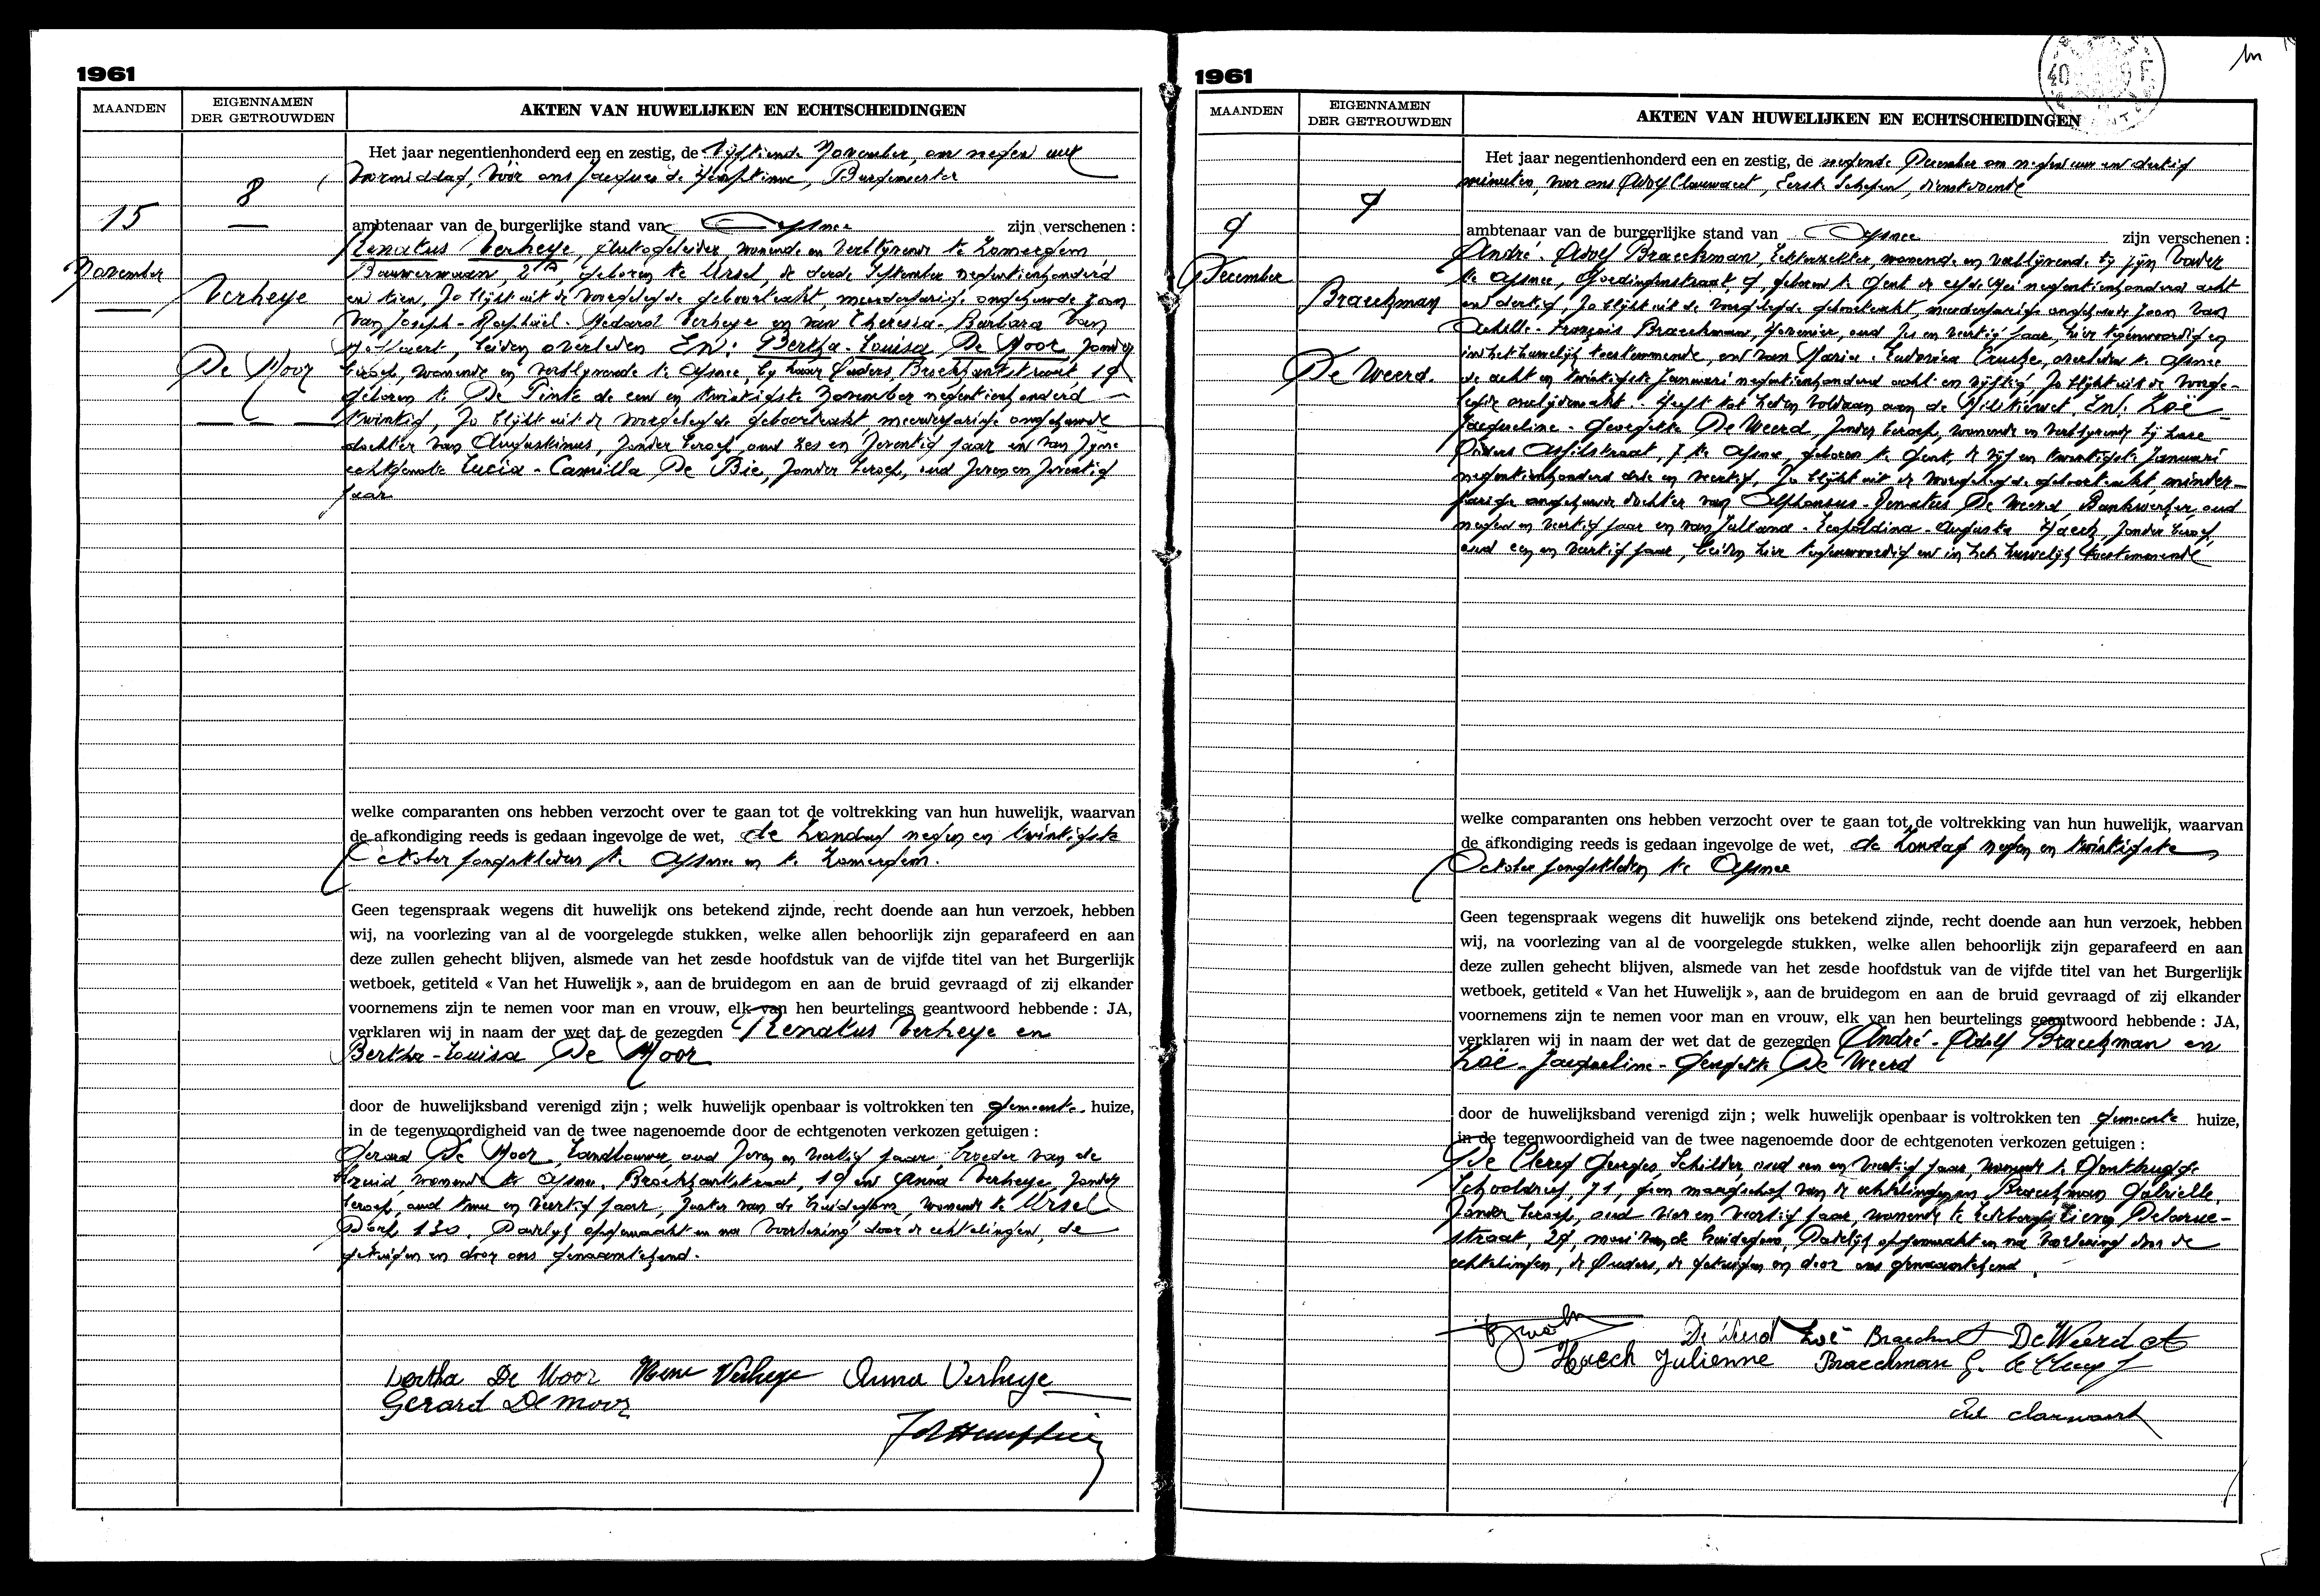 1961
MAANDEN
EIGENNAMEN
DER GETROUWDEN
AKTEN VAN HUWELIJKEN EN ECHTSCHEIDINGEN
8
15
November
Verheye
De Moor
Het jaar negentienhonderd een en zestig, de vijftiende November, om negen uur
voormiddag, vóór ons Jacques de Hemptinne, Burgemeester
ambtenaar van de burgerlijke stand van Afsnee zijn verschenen :
Renatus Verheye, Autogeleider, wonende en verblijvende te Zomergem
geboren te Ursel, de derde September negentienhonderd
en tien, Zo blijkt uit de voorgelegde geboorteakt, meerderjarige ongehuwde zoon
van Joseph-Raphaël-Medard Verheye en van Theresia-Barbara Van
beiden overleden En: Bertha-Louisa De Moor zonder
beroep, wonende en verblijvende te Afsnee, bij haar Ouders, Broekkantstraat 19
geboren te De Pinte de een en twintigste November negentienhonderd
twintig, Zo blijkt uit de voorgelegde geboorteakt meerderjarige ongehuwde
dochter van Augustinus, zonder beroep, oud zes en zeventig jaar en van zijne
echtgenote Lucia-Camilla De Bie, zonder beroep, oud zeven en zeventig
jaar
welke comparanten ons hebben verzocht over te gaan tot de voltrekking van hun huwelijk, waarvan
de afkondiging reeds is gedaan ingevolge de wet, de Zondag negen en twintigste
October jongstleden te Afsnee en te Zomergem.
Geen tegenspraak wegens dit huwelijk ons betekend zijnde, recht doende aan hun verzoek, hebben
wij, na voorlezing van al de voorgelegde stukken, welke allen behoorlijk zijn geparafeerd en aan
deze zullen gehecht blijven, alsmede van het zesde hoofdstuk van de vijfde titel van het Burgerlijk
wetboek, getiteld « Van het Huwelijk », aan de bruidegom en aan de bruid gevraagd of zij elkander
voornemens zijn te nemen voor man en vrouw, elk van hen beurtelings geantwoord hebbende : JA,
verklaren wij in naam der wet dat de gezegden Renatus Verheye en
Bertha-Louisa De Moor
door de huwelijksband verenigd zijn ; welk huwelijk openbaar is voltrokken ten gemeente huize,
in de tegenwoordigheid van de twee nagenoemde door de echtgenoten verkozen getuigen :
Gerard De Moor, Landbouwer, oud zeven en veertig jaar, broeder van de
bruid, wonende te Afsnee, Broekkantstraat, 19 en Anna Verheye, zonder
beroep, oud twee en veertig jaar, zuster van de bruidegom, wonende te Ursel
Dorp 130. Dadelijk opgemaakt en na voorlezing door de echtelingen, de
getuigen en door ons genaamtekend.
Bertha De Moor Rene Verheye Anna Verheye
Gerard De Moor
1961
MAANDEN
EIGENNAMEN
DER GETROUWDEN
AKTEN VAN HUWELIJKEN EN ECHTSCHEIDINGEN
9
9
December
Braeckman
De Weerd.
Het jaar negentienhonderd een en zestig, de negende December om negen uur en dertig
minuten, voor ons Adolf Clauwaert, Eerste Schepen, dienstdoende
ambtenaar van de burgerlijke stand van Afsnee zijn verschenen :
André-Adolf Braeckman, Elektrieker, wonende en verblijvende bij zijn Vader
te Afsnee, Goedingenstraat 9, geboren te Gent de elfde Mei negentienhonderd acht
en dertig, Zo blijkt uit de voorgelegde geboorteakt, meerderjarige ongehuwde zoon van
Achille-François Braeckman, Hovenier, oud zes en veertig jaar, hier tegenwoordig en
in het huwelijk toestemmende, en van Maria-Ludovica overleden te Afsnee
de acht en twintigste Januari negentienhonderd acht en vijftig Zo blijkt uit de voorge-
legde overlijdensakt. Heeft tot heden voldaan aan de Militiewet, En: Zoë
Jacqueline-Georgette De Weerd, zonder beroep, wonende en verblijvende bij hare
Ouders te Afsnee, geboren te Gent, de vijf en twintigste Januari
negentienhonderd drie en veertig, Zo blijkt uit de voorgelegde geboorteakt, minder-
jarige ongehuwde dochter van Alphonsus-Renatus De Weerd, Bankwerker, oud
negen en veertig jaar en van Leopoldina-Augusta Haeck, zonder beroep,
oud een en veertig jaar, beiden hier tegenwoordig en in het huwelijk toestemmende
welke comparanten ons hebben verzocht over te gaan tot de voltrekking van hun huwelijk, waarvan
de afkondiging reeds is gedaan ingevolge de wet, de Zondag negen en twintigste
October jongstleden te Afsnee
Geen tegenspraak wegens dit huwelijk ons betekend zijnde, recht doende aan hun verzoek, hebben
wij, na voorlezing van al de voorgelegde stukken, welke allen behoorlijk zijn geparafeerd en aan
deze zullen gehecht blijven, alsmede van het zesde hoofdstuk van de vijfde titel van het Burgerlijk
wetboek, getiteld « Van het Huwelijk », aan de bruidegom en aan de bruid gevraagd of zij elkander
voornemens zijn te nemen voor man en vrouw, elk van hen beurtelings geantwoord hebbende : JA,
verklaren wij in naam der wet dat de gezegden André-Adolf Braeckman en
Zoë-Jacqueline-Georgette De Weerd
door de huwelijksband verenigd zijn ; welk huwelijk openbaar is voltrokken ten gemeente huize,
in de tegenwoordigheid van de twee nagenoemde door de echtgenoten verkozen getuigen :
De Clercq Georges, Schilder, oud een en veertig jaar, wonende te Gentbrugge
Schooldreef, 71, geen maagschap van de echtelingen en Braeckman Gabrielle,
zonder beroep, oud vier en veertig jaar, wonende te Ledeberg, Lieven Delarue-
straat, 29, moei van de bruidegom, Dadelijk opgemaakt en na voorlezing door de
echtelingen, de Ouders, de getuigen en door ons genaamtekend.
De Weerd Zoë Braeckman De Weerd A
Haeck Julienne Braeckman G.
Clauwaert